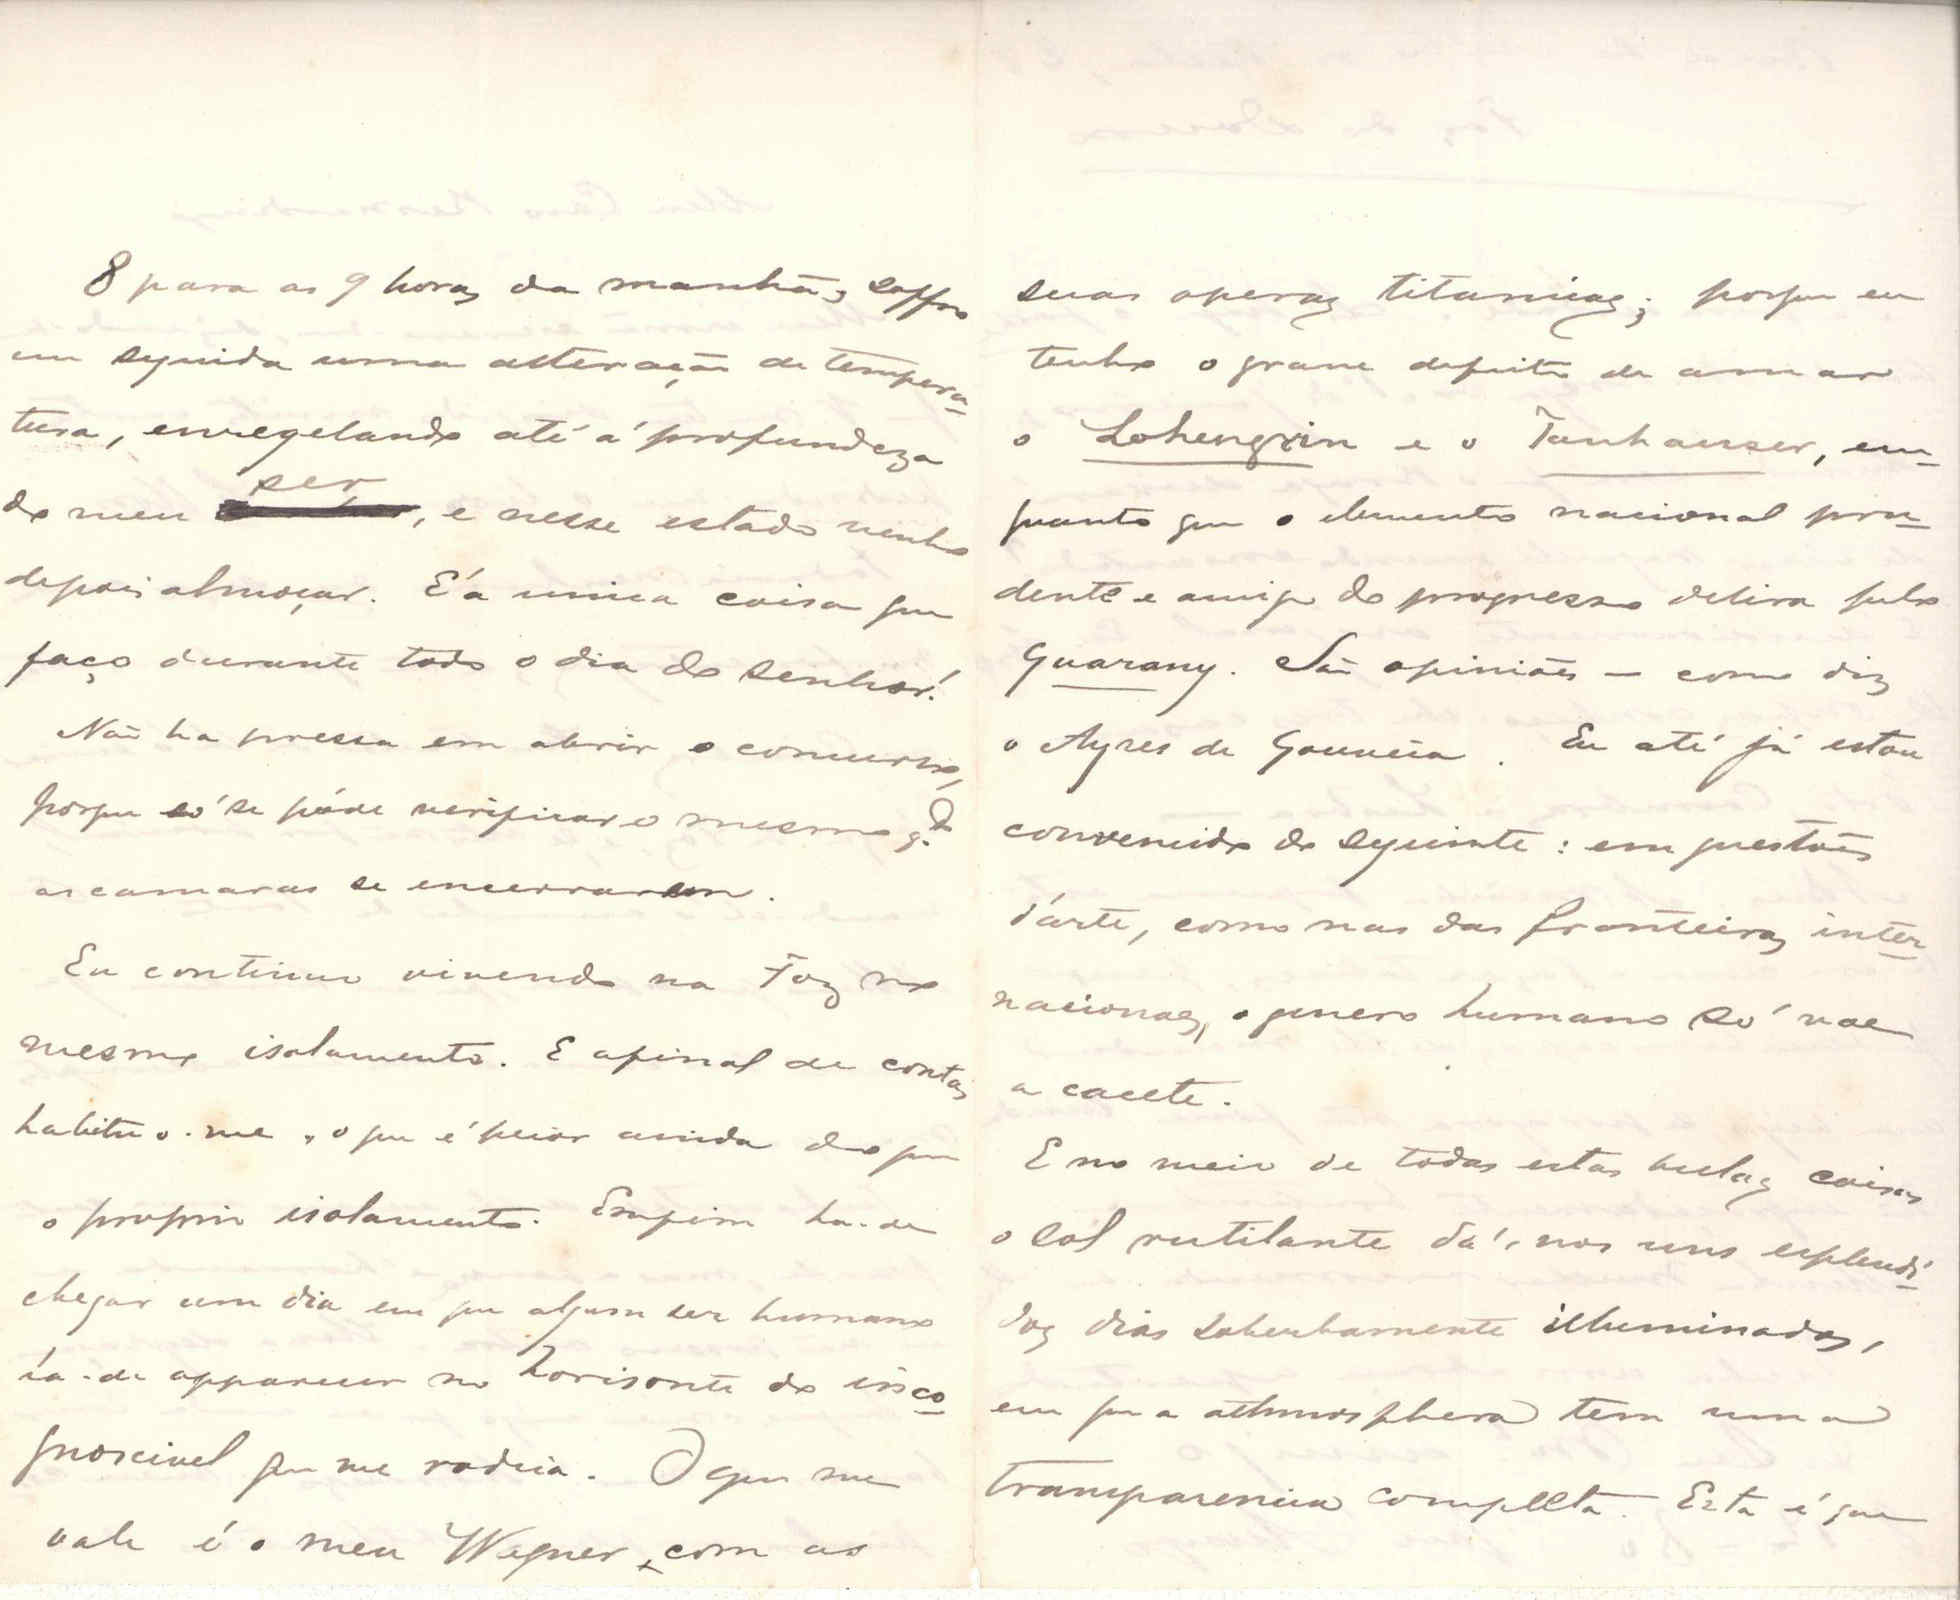 8 para as 9 horas da manhã, soffro
em seguida uma alteração de tempera-
tura, enregelando até á profundeza
do meu ser, e nesse estado venho
depois almoçar. É a unica coisa que
faço durante todo o dia do senhor!
Não ha pressa em abrir o concurso,
porque só se póde verificar o mesmo q.do
as camaras se encerrarem.
Eu continuo vivendo na Foz no
mesmo isolamento. E afinal de contas
habituo-me, o que é peior ainda do que
o proprio isolamento. Emfim ha-de
chegar um dia em que algum ser humano
ha-de apparecer no horisonte do inco-
gnoscivel que me rodeia. O que me
vale é o meu Wagner, com as
suas operas titanicas; porque eu
tenho o grave defeito de amar
o Lohengrin e o Tanhauser, em-
quanto que o elemento nacional pru-
dente e amigo do progresso delira pelo
Guarany. São opiniões — como diz
o Ayres de Gouveia. Eu até já estou
convencido do seguinte: em questões
d'arte, como nas das fronteiras inter-
nacionaes, o genero humano só vae
a cacete.
E no meio de todas estas bellas coisas
o sol rutilante dá-nos uns esplendi-
dos dias soberbamente illuminados,
em que a athmosphera tem uma
transparencia completa. Esta é que